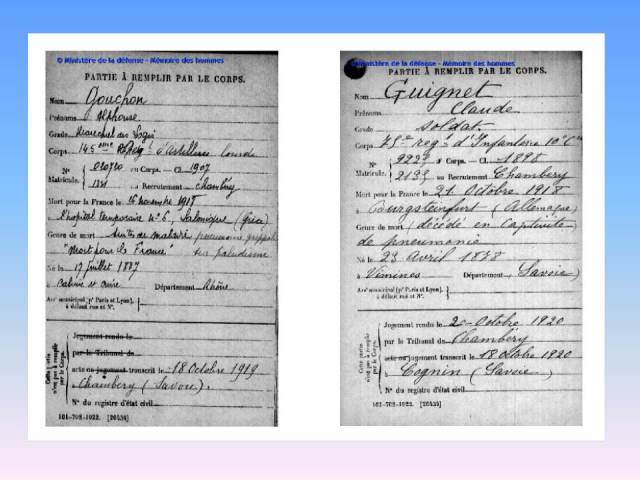 © Ministère de la défense - Mémoire des hommes
PARTIE À REMPLIR PAR LE CORPS.
Nom Gouchon
Prénoms Alphonse
Grade Marechal des Logis
Corps 145eme Reg t d'Artillerie Lourde
N° au Corps. — Cl. 1907
Matricule. 1321 au Recrutement Chambéry
Mort pour la France le 16 novembre 1917
à l'hopital temporaire n° 6, Salonique (Grèce)
Genre de mort Suites de maladie
"Mort pour la France" sur paludisme
Né le 17 juillet 1887
à Caluire et Cuire Département Rhône
Arr' municipal (p' Paris et Lyon),
à défaut rue et N°.
Cette partie
n'est pas à remplir
par le Corps.
Jugement rendu le
par le Tribunal de
acte ou jugement transcrit le 18 Octobre 1919
à Chambéry (Savoie).
N° du registre d'état civil
101-708-1922. [26434]
© Ministère de la défense - Mémoire des hommes
PARTIE À REMPLIR PAR LE CORPS.
Nom Guignet
Prénoms Claude
Grade soldat
Corps 75e reg t d'Infanterie 10e Cie
N° 9222 au Corps. — Cl. 1898
Matricule. 2133 au Recrutement Chambéry
Mort pour la France le 21 Octobre 1918
à Bourgsteinfurt (Allemagne)
Genre de mort (décédé en Captivité
de pneumonie
Né le 23 Avril 1878
à Vimines Département (Savoie)
Arr' municipal (p' Paris et Lyon),
à défaut rue et N°.
Cette partie
n'est pas à remplir
par le Corps.
Jugement rendu le 20 Octobre 1920
par le Tribunal de Chambéry
acte ou jugement transcrit le 18 Octobre 1920
à Cognin (Savoie)
N° du registre d'état civil
101-708-1922. [26434]